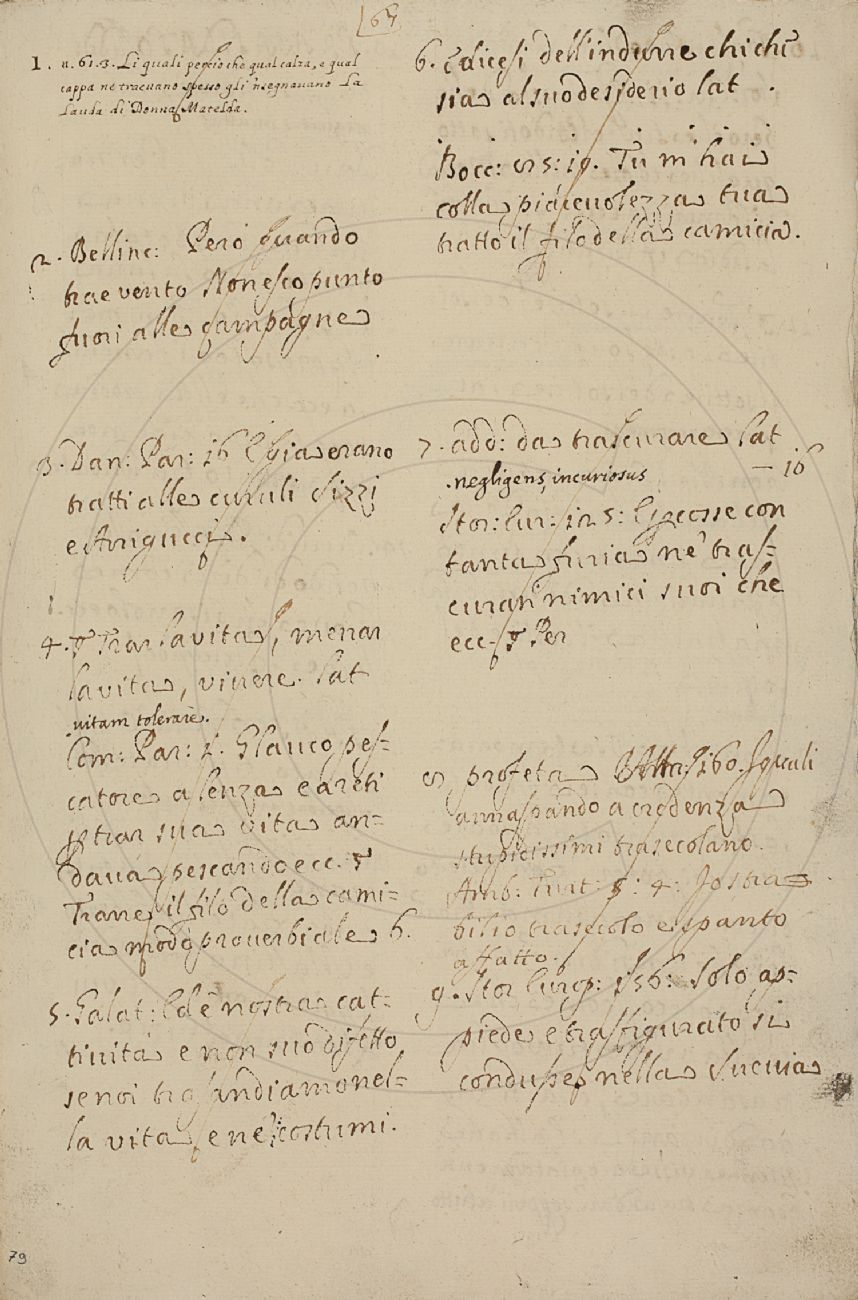 64
1. n. 61.3. Li quali perciò che qual calza, e qual
cappa ne traevano spesso gl'insegnavano La
Lauda di Donna Matelda.
2. Bellinc: Però quando
trae vento Non esco punto
fuori alle campagne
3. Dan: Par: 16 E già erano
tratti alle curuli Sizzi
e Arigucci.
4. Trar la vita, menar
la vita, vivere. Lat
vitam tolerare.
Com: Par: 1. Glauco pes-
catore a lenza e a reti
trar sua vita an-
dava pescando ecc.
Trarre il filo della cami-
cia modo proverbiale 6.
5. Galat: Ed è nostra cat-
tività e non suo difetto
se noi trasandiamo nel-
la vita e ne' costumi.
6. E dicesi dell'indurre chi chi
sia al suo desiderio lat .
Bocc: 85: 19. Tu m'hai
colla piacevolezza tua
tratto il filo della camicia.
7. add: da trascurare Lat
negligens, incuriosus
— 16
Stor: Eur: 125: E corse con
tanta furia ne' tras-
curati nimici suoi che
ecc. Per
8 profeta 160. I quali
annaspando a credenza
stupidissimi trasecolano.
Amb: Furt: 5: 4: Io stra-
bilio trasecolo e spanto
affatto.
9. Stor Europ: 156: Solo ap-
piede e trasfigurato si
condusse nella Suevia
79